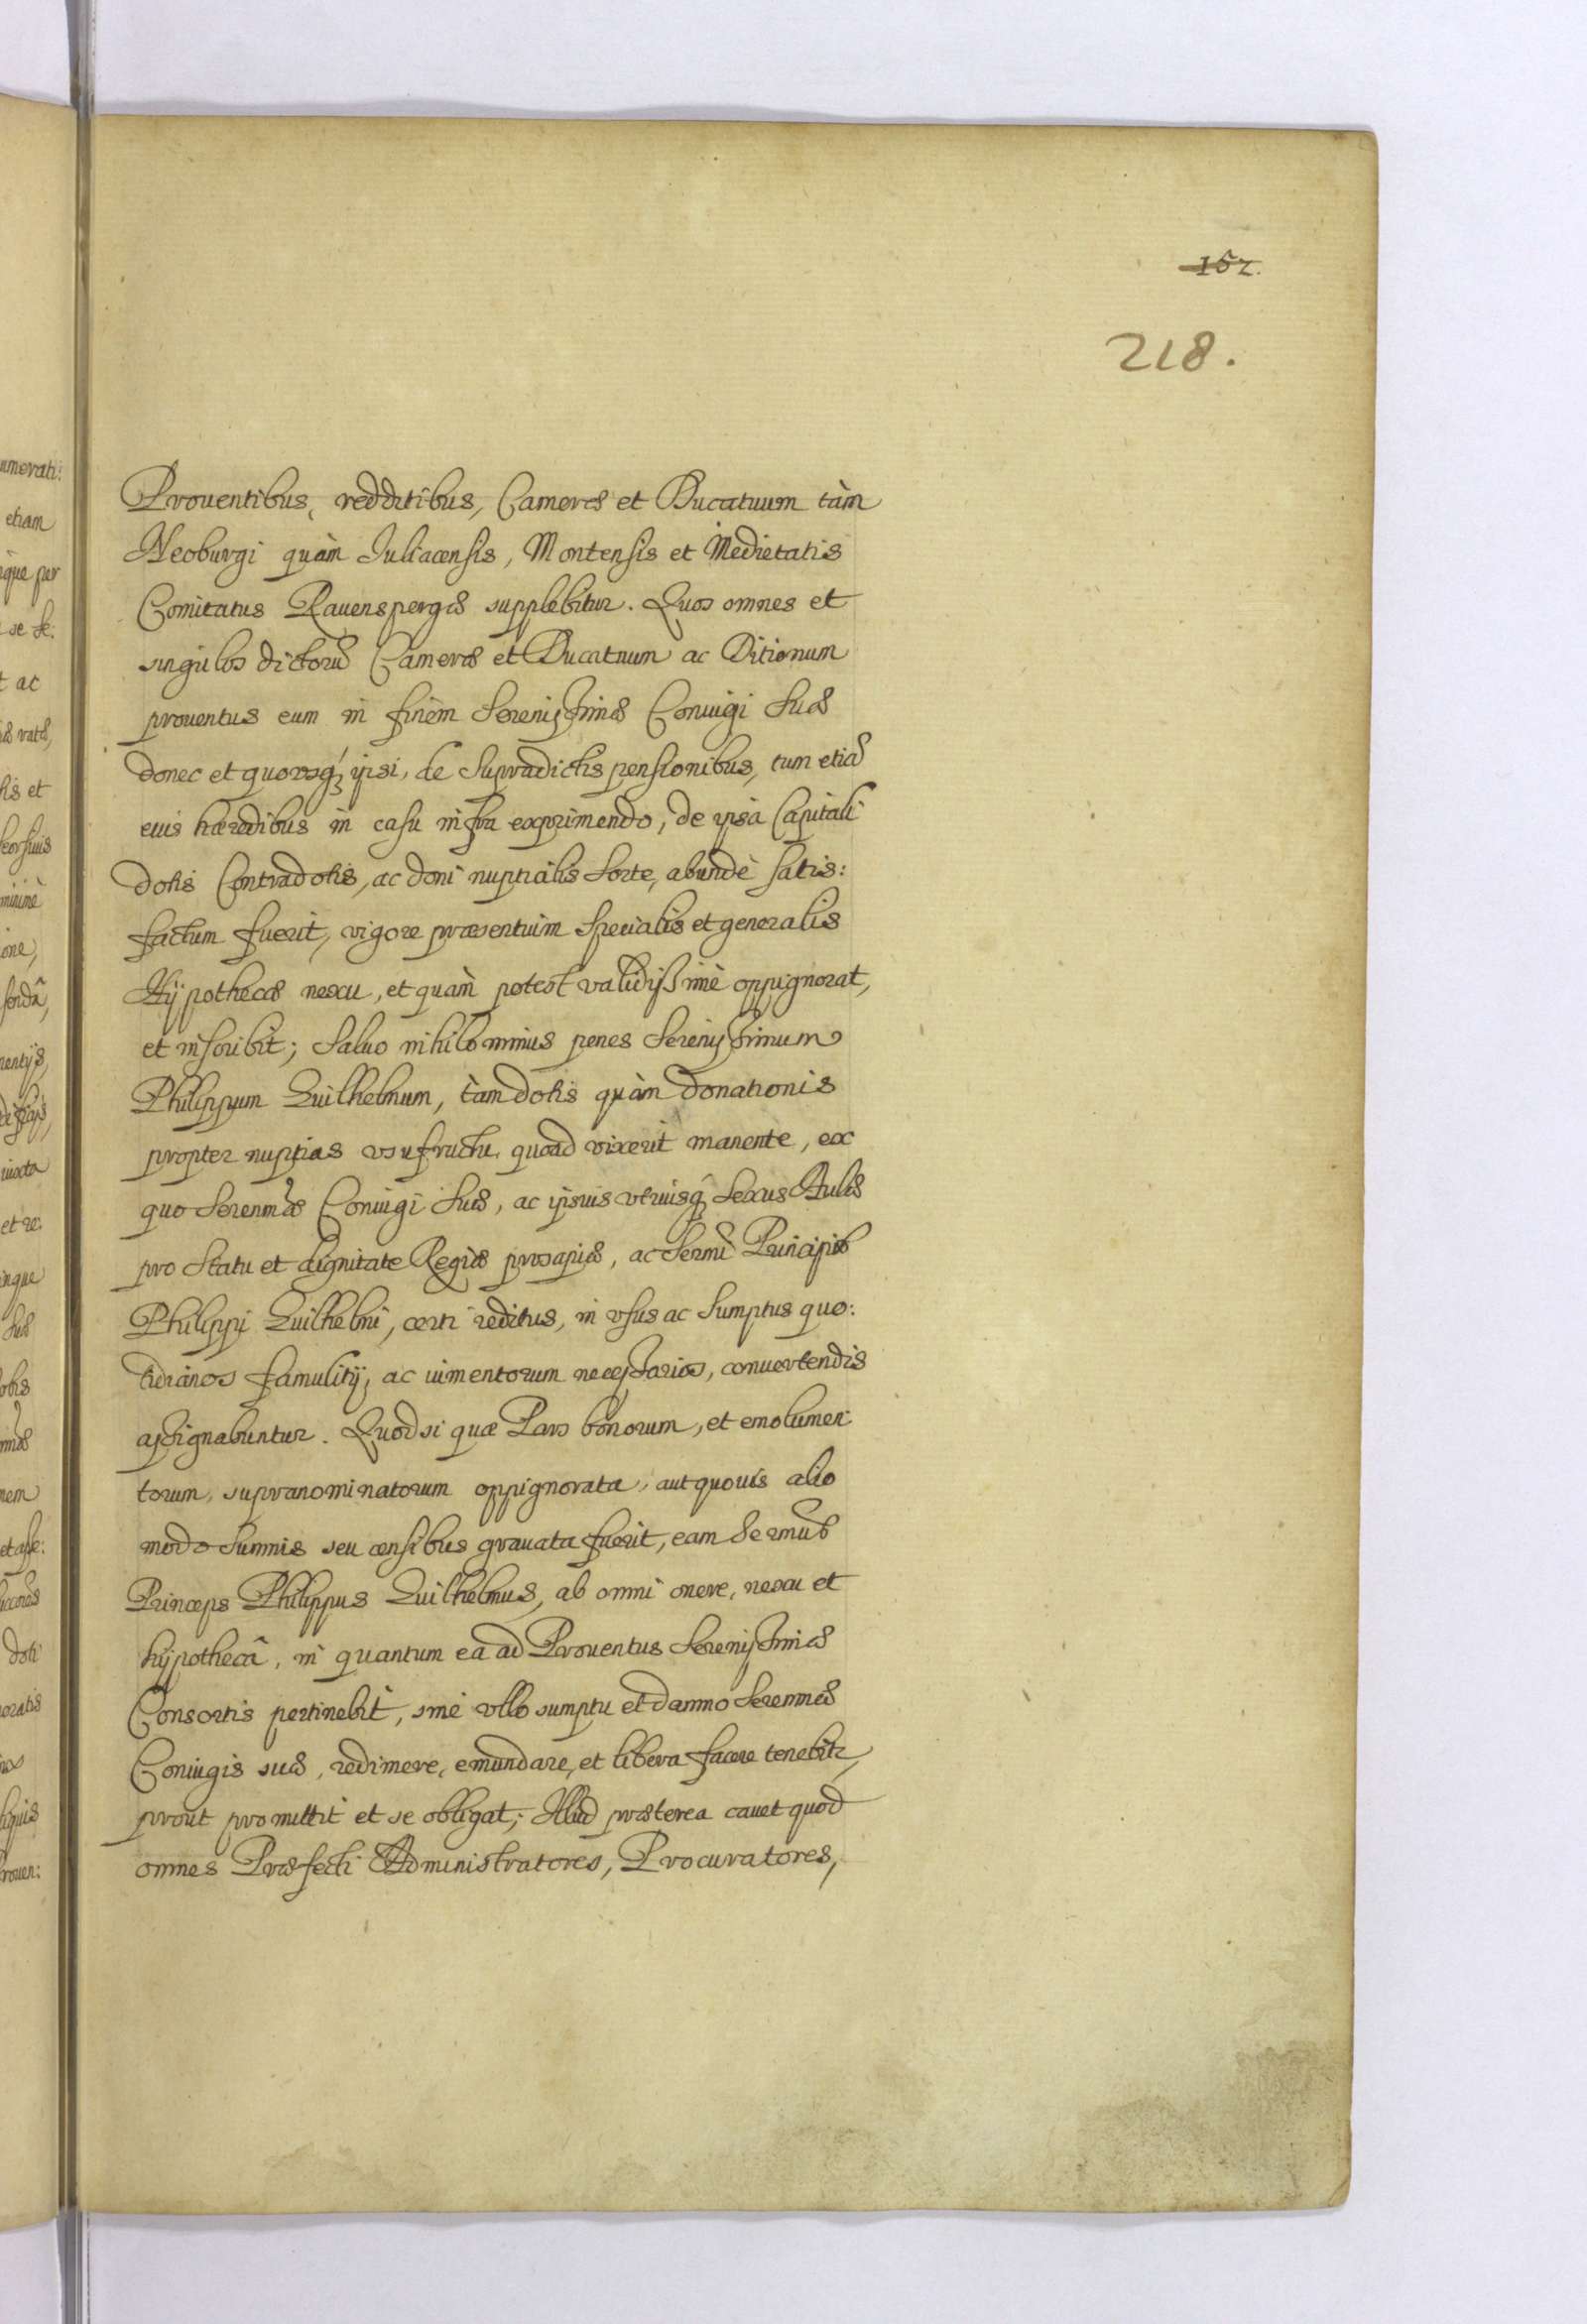 152.
218.
Prouentibus, redditibus, Cameræ et Ducatuum tàm
Neoburgi quàm Juliacensis, Montensis et Medietatis
Comitatus Rauenspergæ supplebitur. Quos omnes et
singulos dictorū Cameræ et Ducatuum ac Ditionum
prouentus eum in finem Serenissimæ Coniugi Suæ
donec et quovsq́ ipsi, de Supradictis pensionibus, tum etiā
eius hæredibus in casu infra exprimendo, de ipsa Capitali
dotis Contradotis, ac doni nuptialis Sorte, abundè satis:
factum fuerit, vigore præsentium Specialis et generalis
Hÿpothecæ nexu, et quàm potest validissimè oppignorat,
et inscribit; Saluo nihilominus penes Serenissimum
Philippum Guilhelmum, tàm dotis quàm donationis
propter nuptias vsufructu, quoad vixerit manente, ex
quo Serenmæ Coniugi Suæ, ac ipsius vtriusq́ Sexus Aulæ
pro Statu et dignitate Regiæ prosapiæ, ac Sermi Principis
Philippi Guilhelmi, certi reditus, in vsus ac Sumptus quo:
tidianos famulitÿ, ac iumentorum necessarios, convertendis
assignabuntur. Quodsi quæ Pars bonorum, et emolumen:
torum, supranominatorum oppignorata, aut quouis alio
modo Summis seu censibus grauata fuerit, eam Sermus
Princeps Philippus Guilhelmus, ab omni onere, nexu et
hÿpothecâ, in quantum ea ad Prouentus Serenissimæ
Consortis pertinebit, sine vllo sumptu et damno Serenmæ
Coniugis suæ, redimere, emundare, et libera facere tenebitr,
prout promittit et se obligat; Illud præterea cauet quod
omnes Præfecti Administratores, Procuratores,